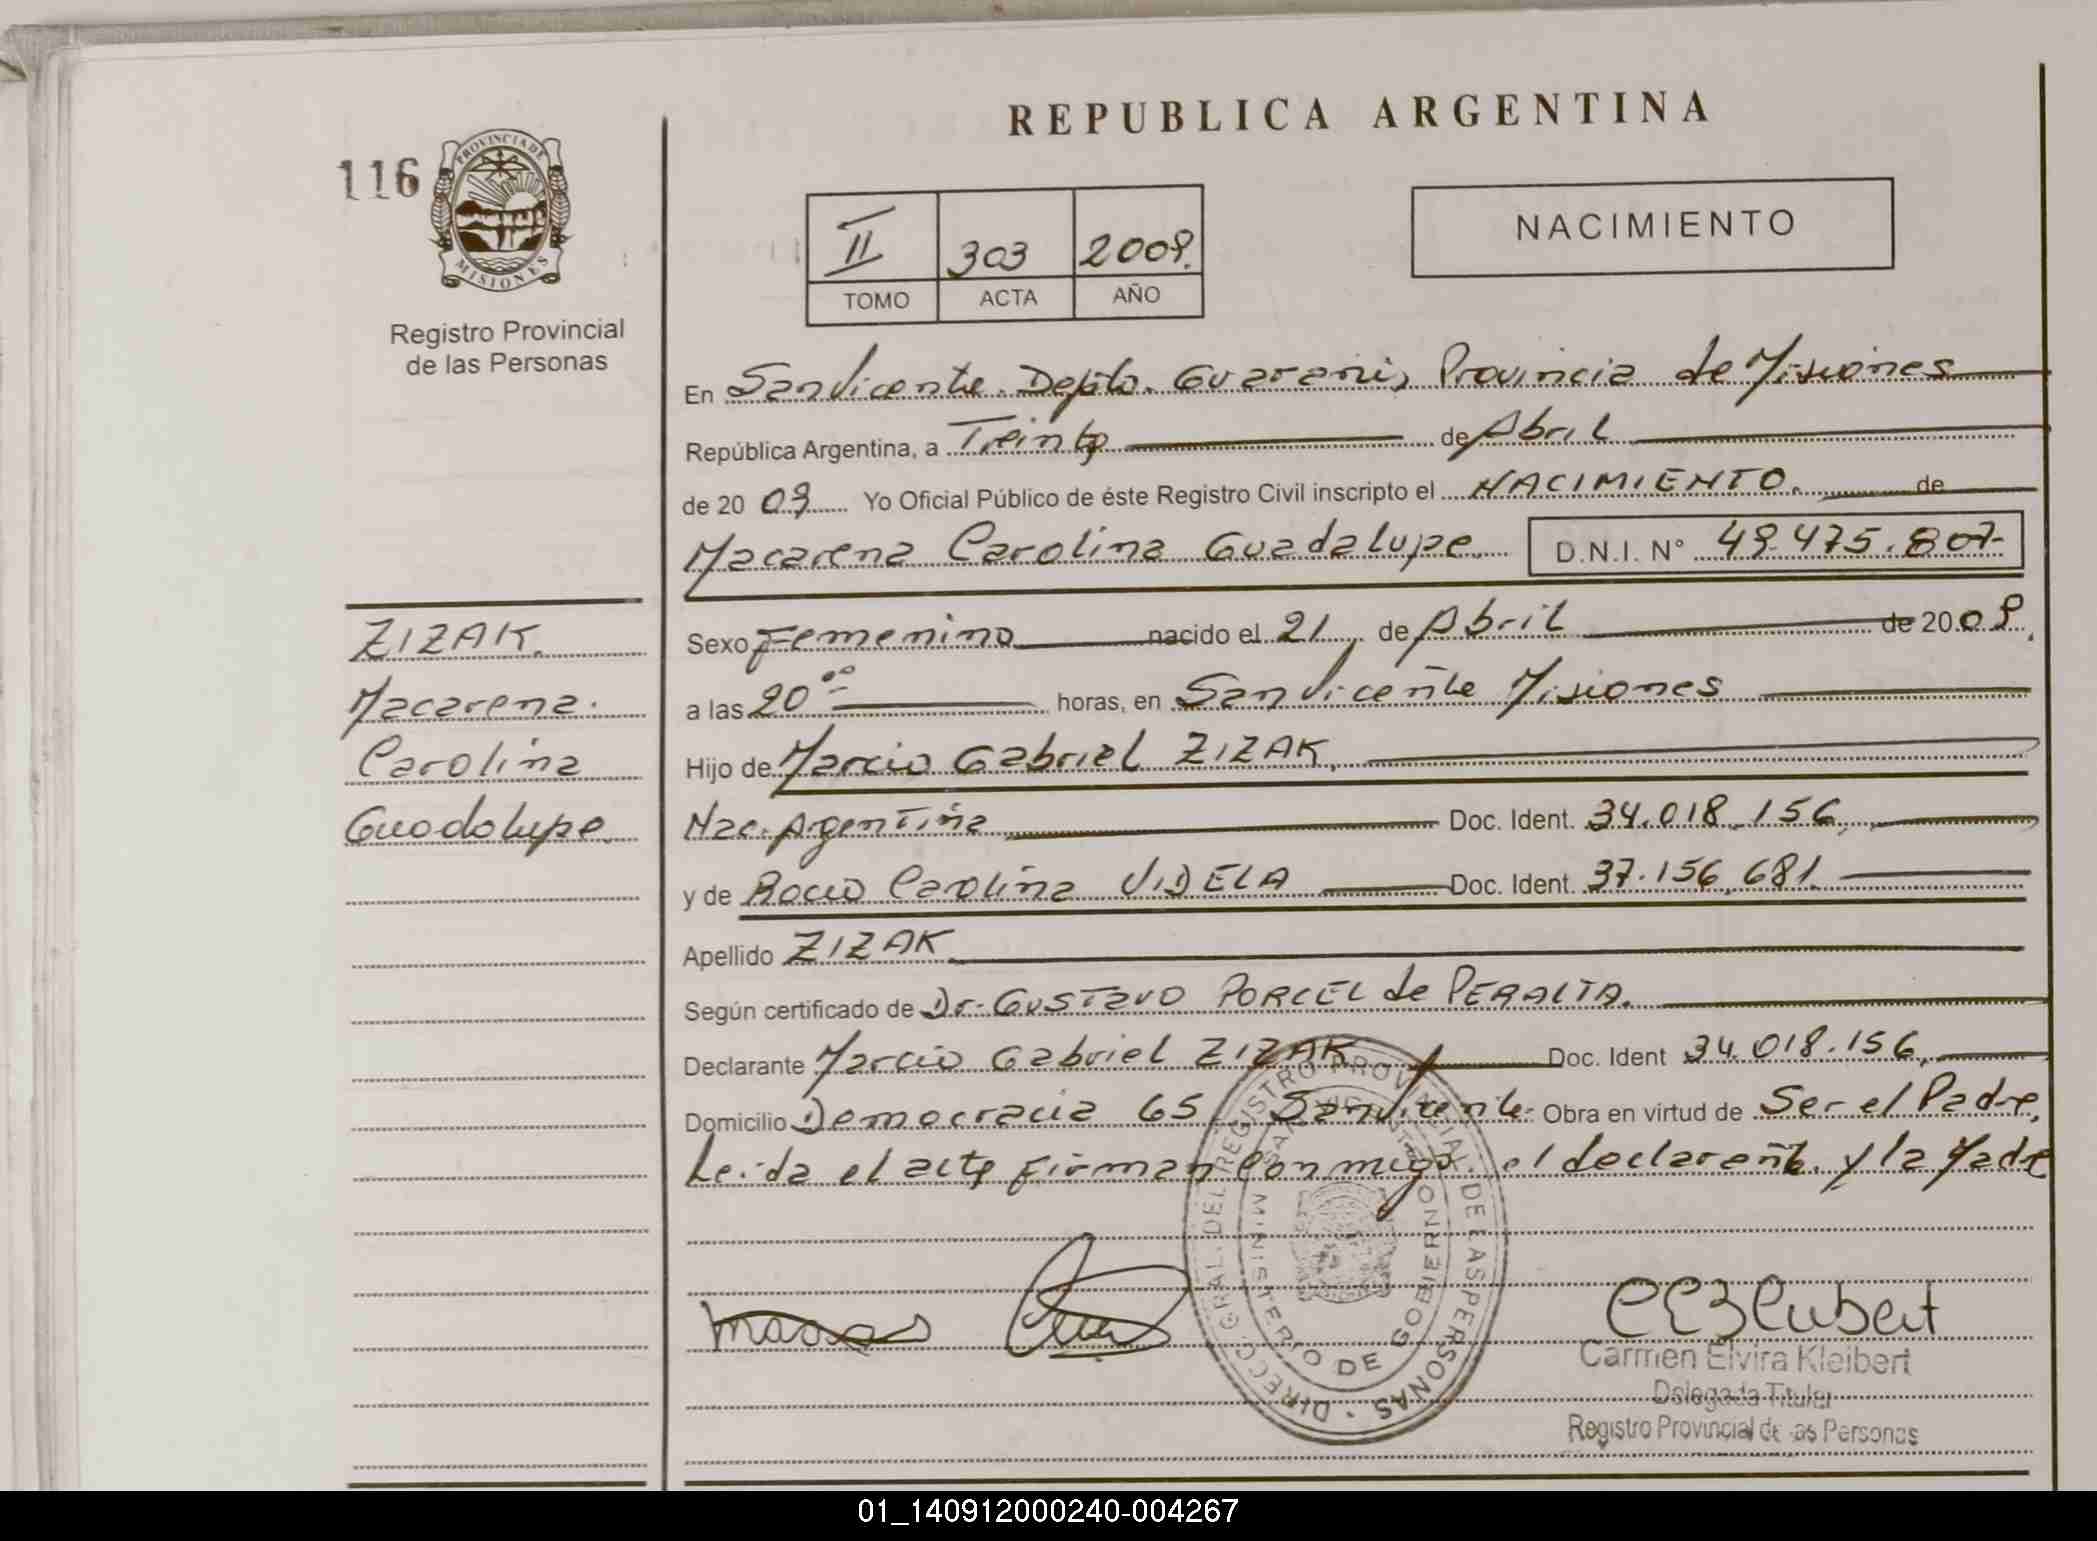 REPUBLICA ARGENTINA
116
PROVINCIA DE MISIONES
Registro Provincial
de las Personas
II 303 2009.
TOMO ACTA AÑO
NACIMIENTO
En San Vicente. Depto. Guarani, Provincia de Misiones
República Argentina, a Treinta de Abril
de 2009 Yo Oficial Público de éste Registro Civil inscripto el NACIMIENTO. de
Macarena Carolina Guadalupe. D.N.I. N° 49.475.807-
ZIZAK.
Macarena.
Carolina
Guadalupe.
Sexo Femenino nacido el 21 de Abril de 2009.
a las 20°° horas, en San Vicente Misiones
Hijo de Marcio Gabriel ZIZAK.
Nac. Argentina Doc. Ident. 34.018.156,
y de Rocio Carolina VIDELA Doc. Ident. 37.156.681.
Apellido ZIZAK
Según certificado de Dr. GUSTAVO PORCEL de PERALTA.
Declarante Marcio Gabriel ZIZAK Doc. Ident 34.018.156,
Domicilio Democracia 65, San Vicente. Obra en virtud de Ser el Padre,
Leida el acta firman conmigo. el declarante. y la Madre
DIRECC. GRAL. DEL REGISTRO PROVINCIAL DE LAS PERSONAS
MINISTERIO DE GOBIERNO
Carmen Elvira Kleibert
Delegada Titular
Registro Provincial de las Personas
01_140912000240-004267